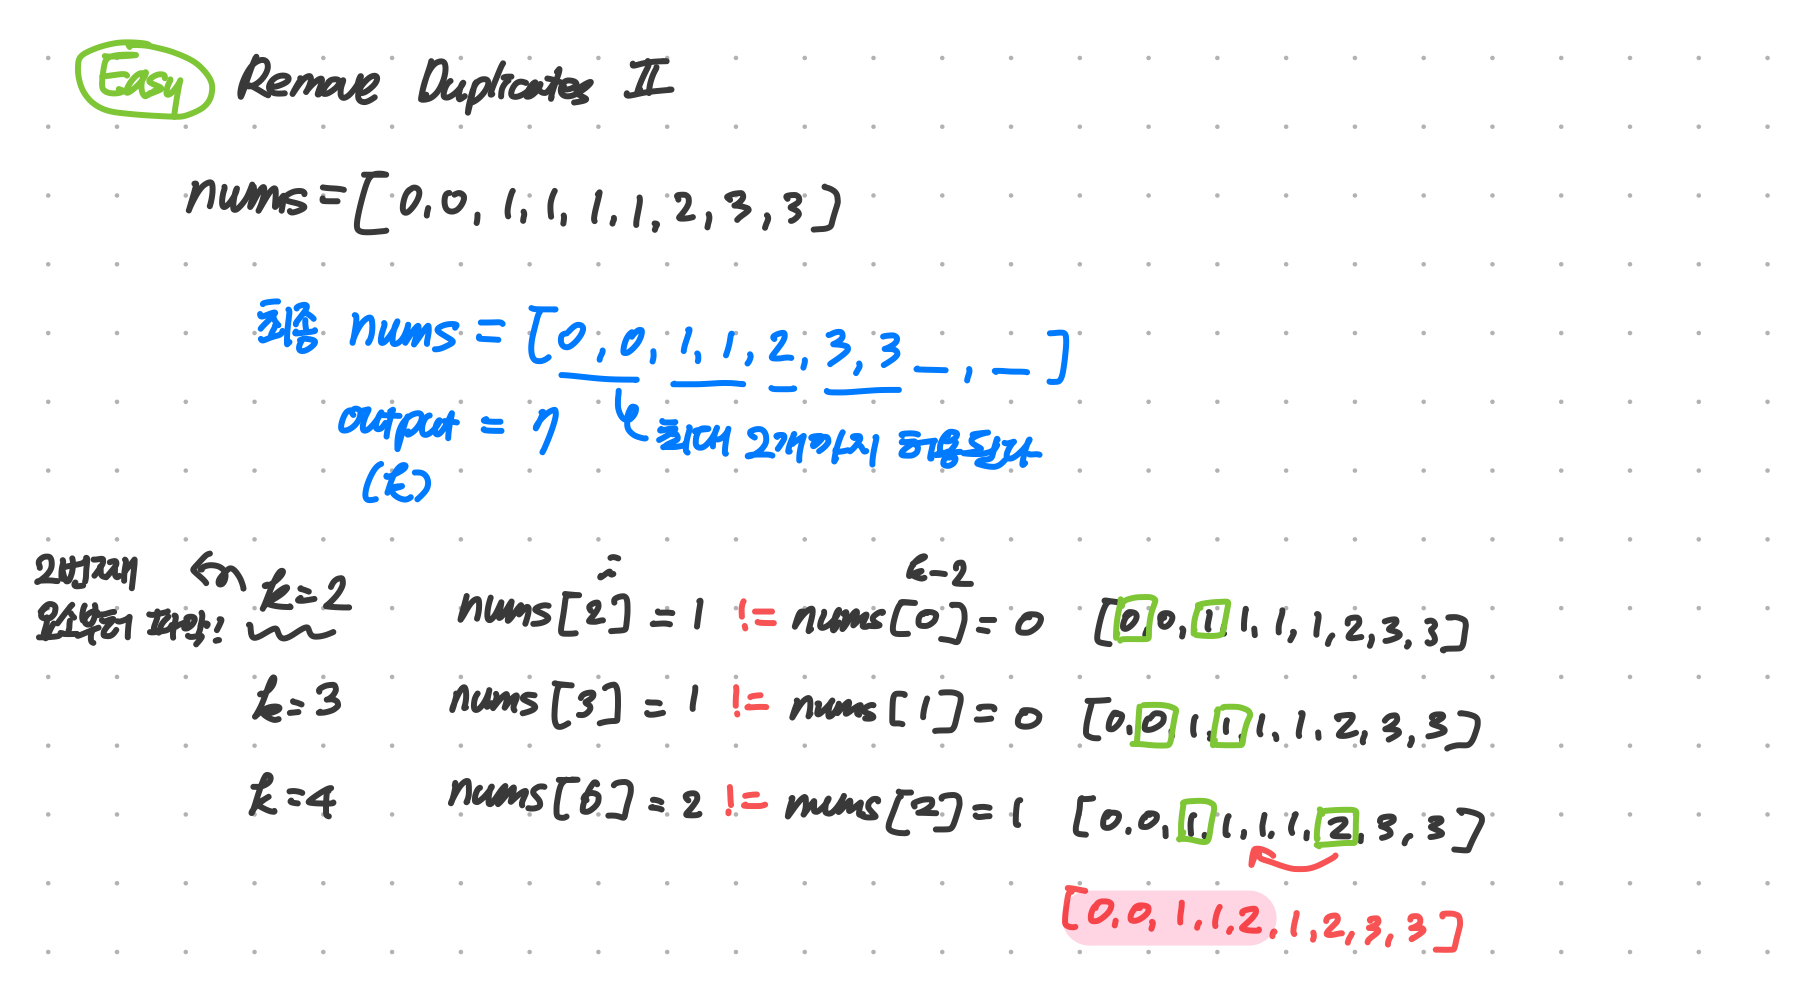 Easy Remove Duplicates II
nums = [0, 0, 1, 1, 1, 1, 2, 3, 3]
최종 nums = [0, 0, 1, 1, 2, 3, 3 _, _]
output = 7
(k)
최대 2개까지 허용된다
2번째
요소부터 파악!
k=2
i
k-2
nums[2] = 1 != nums[0] = 0 [0, 0, 1, 1, 1, 1, 2, 3, 3]
k=3 nums[3] = 1 != nums[1] = 0 [0, 0, 1, 1, 1, 1, 2, 3, 3]
k=4 nums[6] = 2 != nums[2] = 1 [0, 0, 1, 1, 1, 1, 2, 3, 3]
[0, 0, 1, 1, 2, 1, 2, 3, 3]